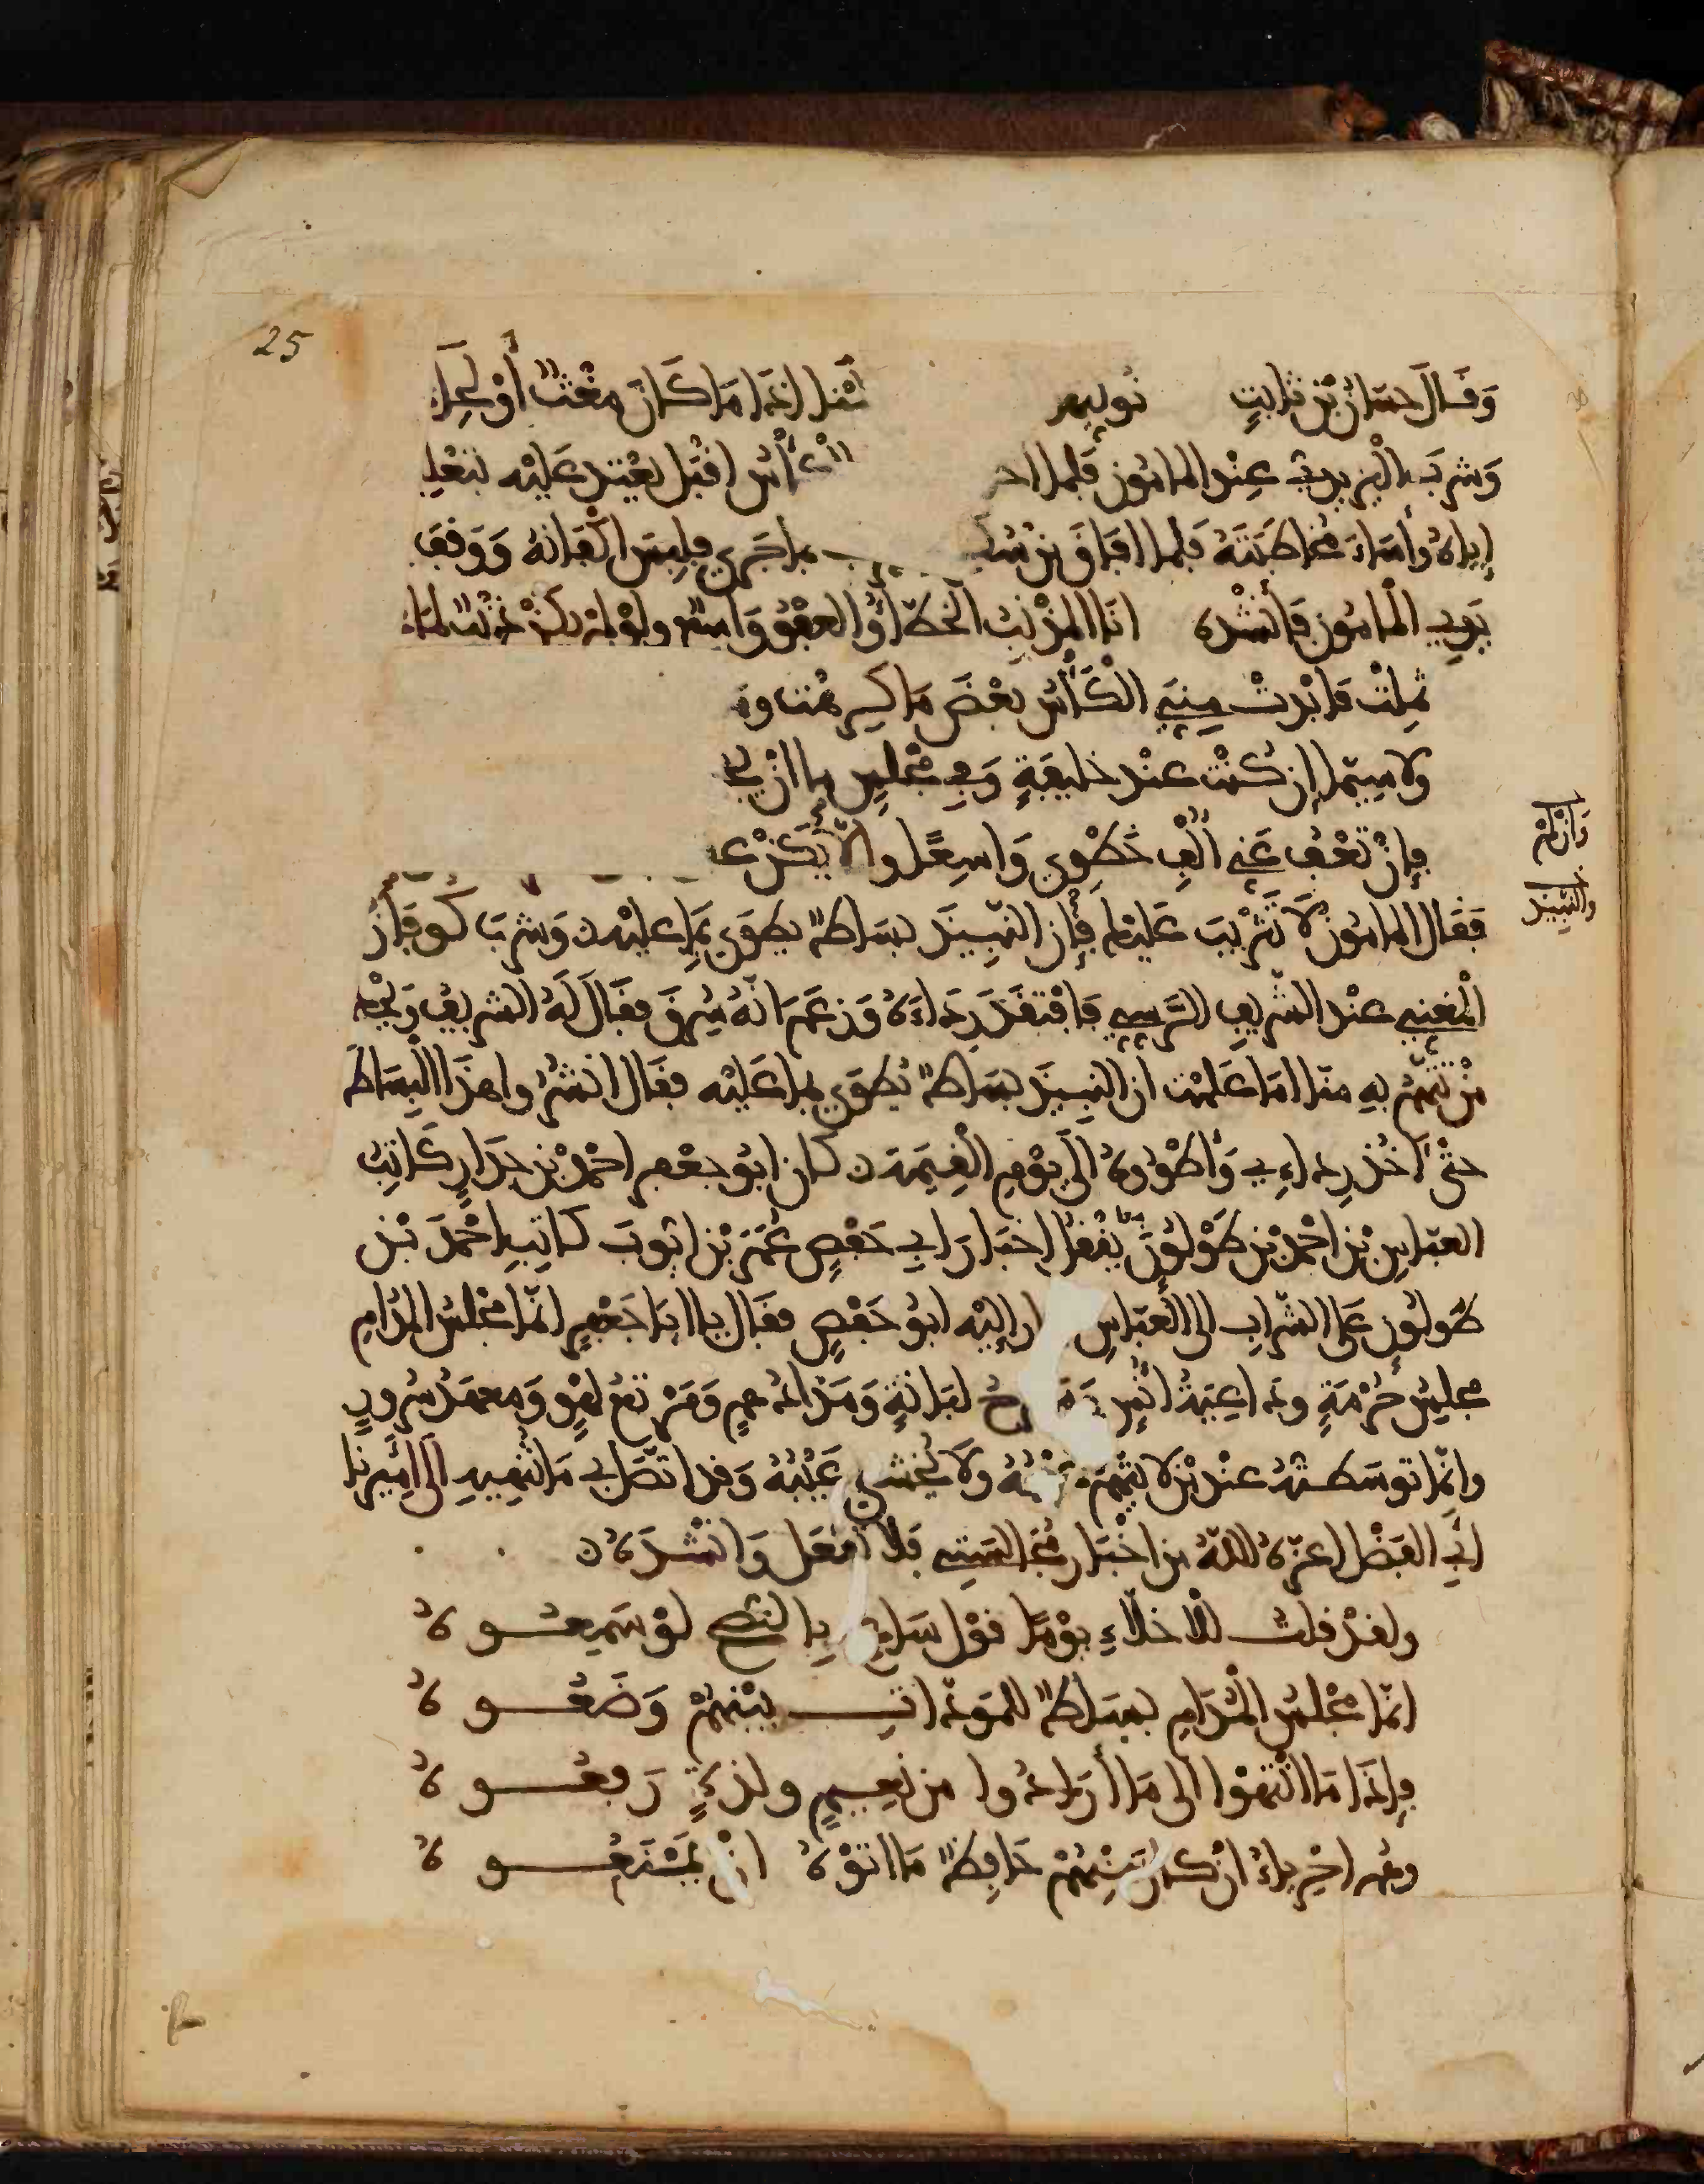 25
وَقَالَ حسّان بْن ثابتٍ نوليه ــتنا اذا مَا كَانَ مغْثٌ أوْ لِحَاءُ
وَشربَ اليزيديّ عِنْد المامُون فَلما اخـ الكأْسُ اقبَل يعْتد عَليْه بتعْلِيمه
إياهُ وأسَاءَ مخاطبَتهُ فلما افاقَ مِن سُكـ بما جَرى فلبِسَ اكْفانهُ وَوقفَ
بَين يدي المأمُون فَأنشدهُ انَا المذْنبُ الخطّاءُ والعفْوُ وَاسعٌ ولوْ لمْ يكنْ ذنْبٌ لمَا
ثمِلْت فَابْدتْ مِنّي الكَأْسُ بعْضَ مَا كرهْت وَمَا
ولا سيّما إن كنْت عنْد خليفةٍ وَفي مجْلسٍ ما انْ يـ
فإنْ تعْف عَني الْفِ خَطْوي وَاسِعًا والّا يَكنْ عـ
فَقال المامُون لا تَثْريبَ عَليْك فإن النّبيذَ بسَاطٌ يطوَى بمَا عليْه وَشربَ كوفان
المغني عنْد الشّريفِ الرّسي فَافتقدَ رِدَاءَهُ وَزعَم انّهُ سُرقَ فقَال لَهُ الشريفُ وَيْحك
منْ تتّهمُ بهِ منّا امَا عَلمْت ان النبيذَ بسَاطٌ يُطوَى بما عَليْه فقَال انشرُوا هذَا البسَاط
حتّى آخُذ رِداءِي وَاطوُوهُ الَى يوْمِ القِيَمة كان ابُو جعْفر احْمَد بْن جدارٍ كَاتِبُ
العبّاسِ بْن احْمد بْن طُولُونَ ينْقل اخبَارَ ابي حَفصٍ عُمَرَ بْن ايّوبَ كاتِبِ احْمَد بْن
طُولُون عَلى الشّراب الى العبّاسِ ار إليْه ابُو حَفصٍ فقَال يا ابَا جَعفرٍ انّما مجْلسُ المدَامِ
مجلِسُ حُرْمَةٍ ودَاعِيَةُ انْسٍ وَمسرحُ لبَانةٍ وَمذادُ همٍ وَمَرْتعُ لهْوٍ وَمعهَدُ سُرورٍ
وانّما توسّطتهُ عنْد منْ لا يتّهمُ غيْبُهُ ولا يُخشى عَيْبُهُ وَقد اتّصَل بي مَا تنْهيهِ الَى اميرِنا
ابي الفضْل اعزّهُ اللّهُ من اخْبَار مجَالسَتي فلَا تفعَل وَانشدَهُ
ولقدْ قلتُ للأخلّاءِ يوْمًا قوْل سَاعٍ بالنصْح لوْ سَمِعُـوهُ
انّما مجْلسُ المدَامِ بسَاطٌ للمَودّاتِ بيْنهُمْ وَضَعُـوهُ
فإذَا مَا انْتهَوْا الى مَا أرَادُوا من نعِيمٍ ولذةٍ رَفعُـوهُ
وهُم احْرياءُ انْ كان مِنْهُمْ حَافِظٌ مَا اتوْهُ انْ يَمْنعُـوهُ
وَانْ لمْ
والنّبيذ